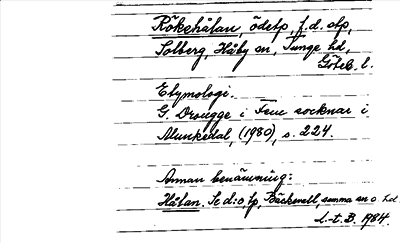 Rökehålan, ödetp, f.d. otp,
Solberg, Håby sn, Tunge hd,
Göteb. l.
Etymologi.
G. Drougge i Fem socknar i
Munkedal, (1980), s. 224.
Annan benämning:
Hålan. Se d:o tp, Bäckevall, samma sn o. hd
L.-t. B. 1984.